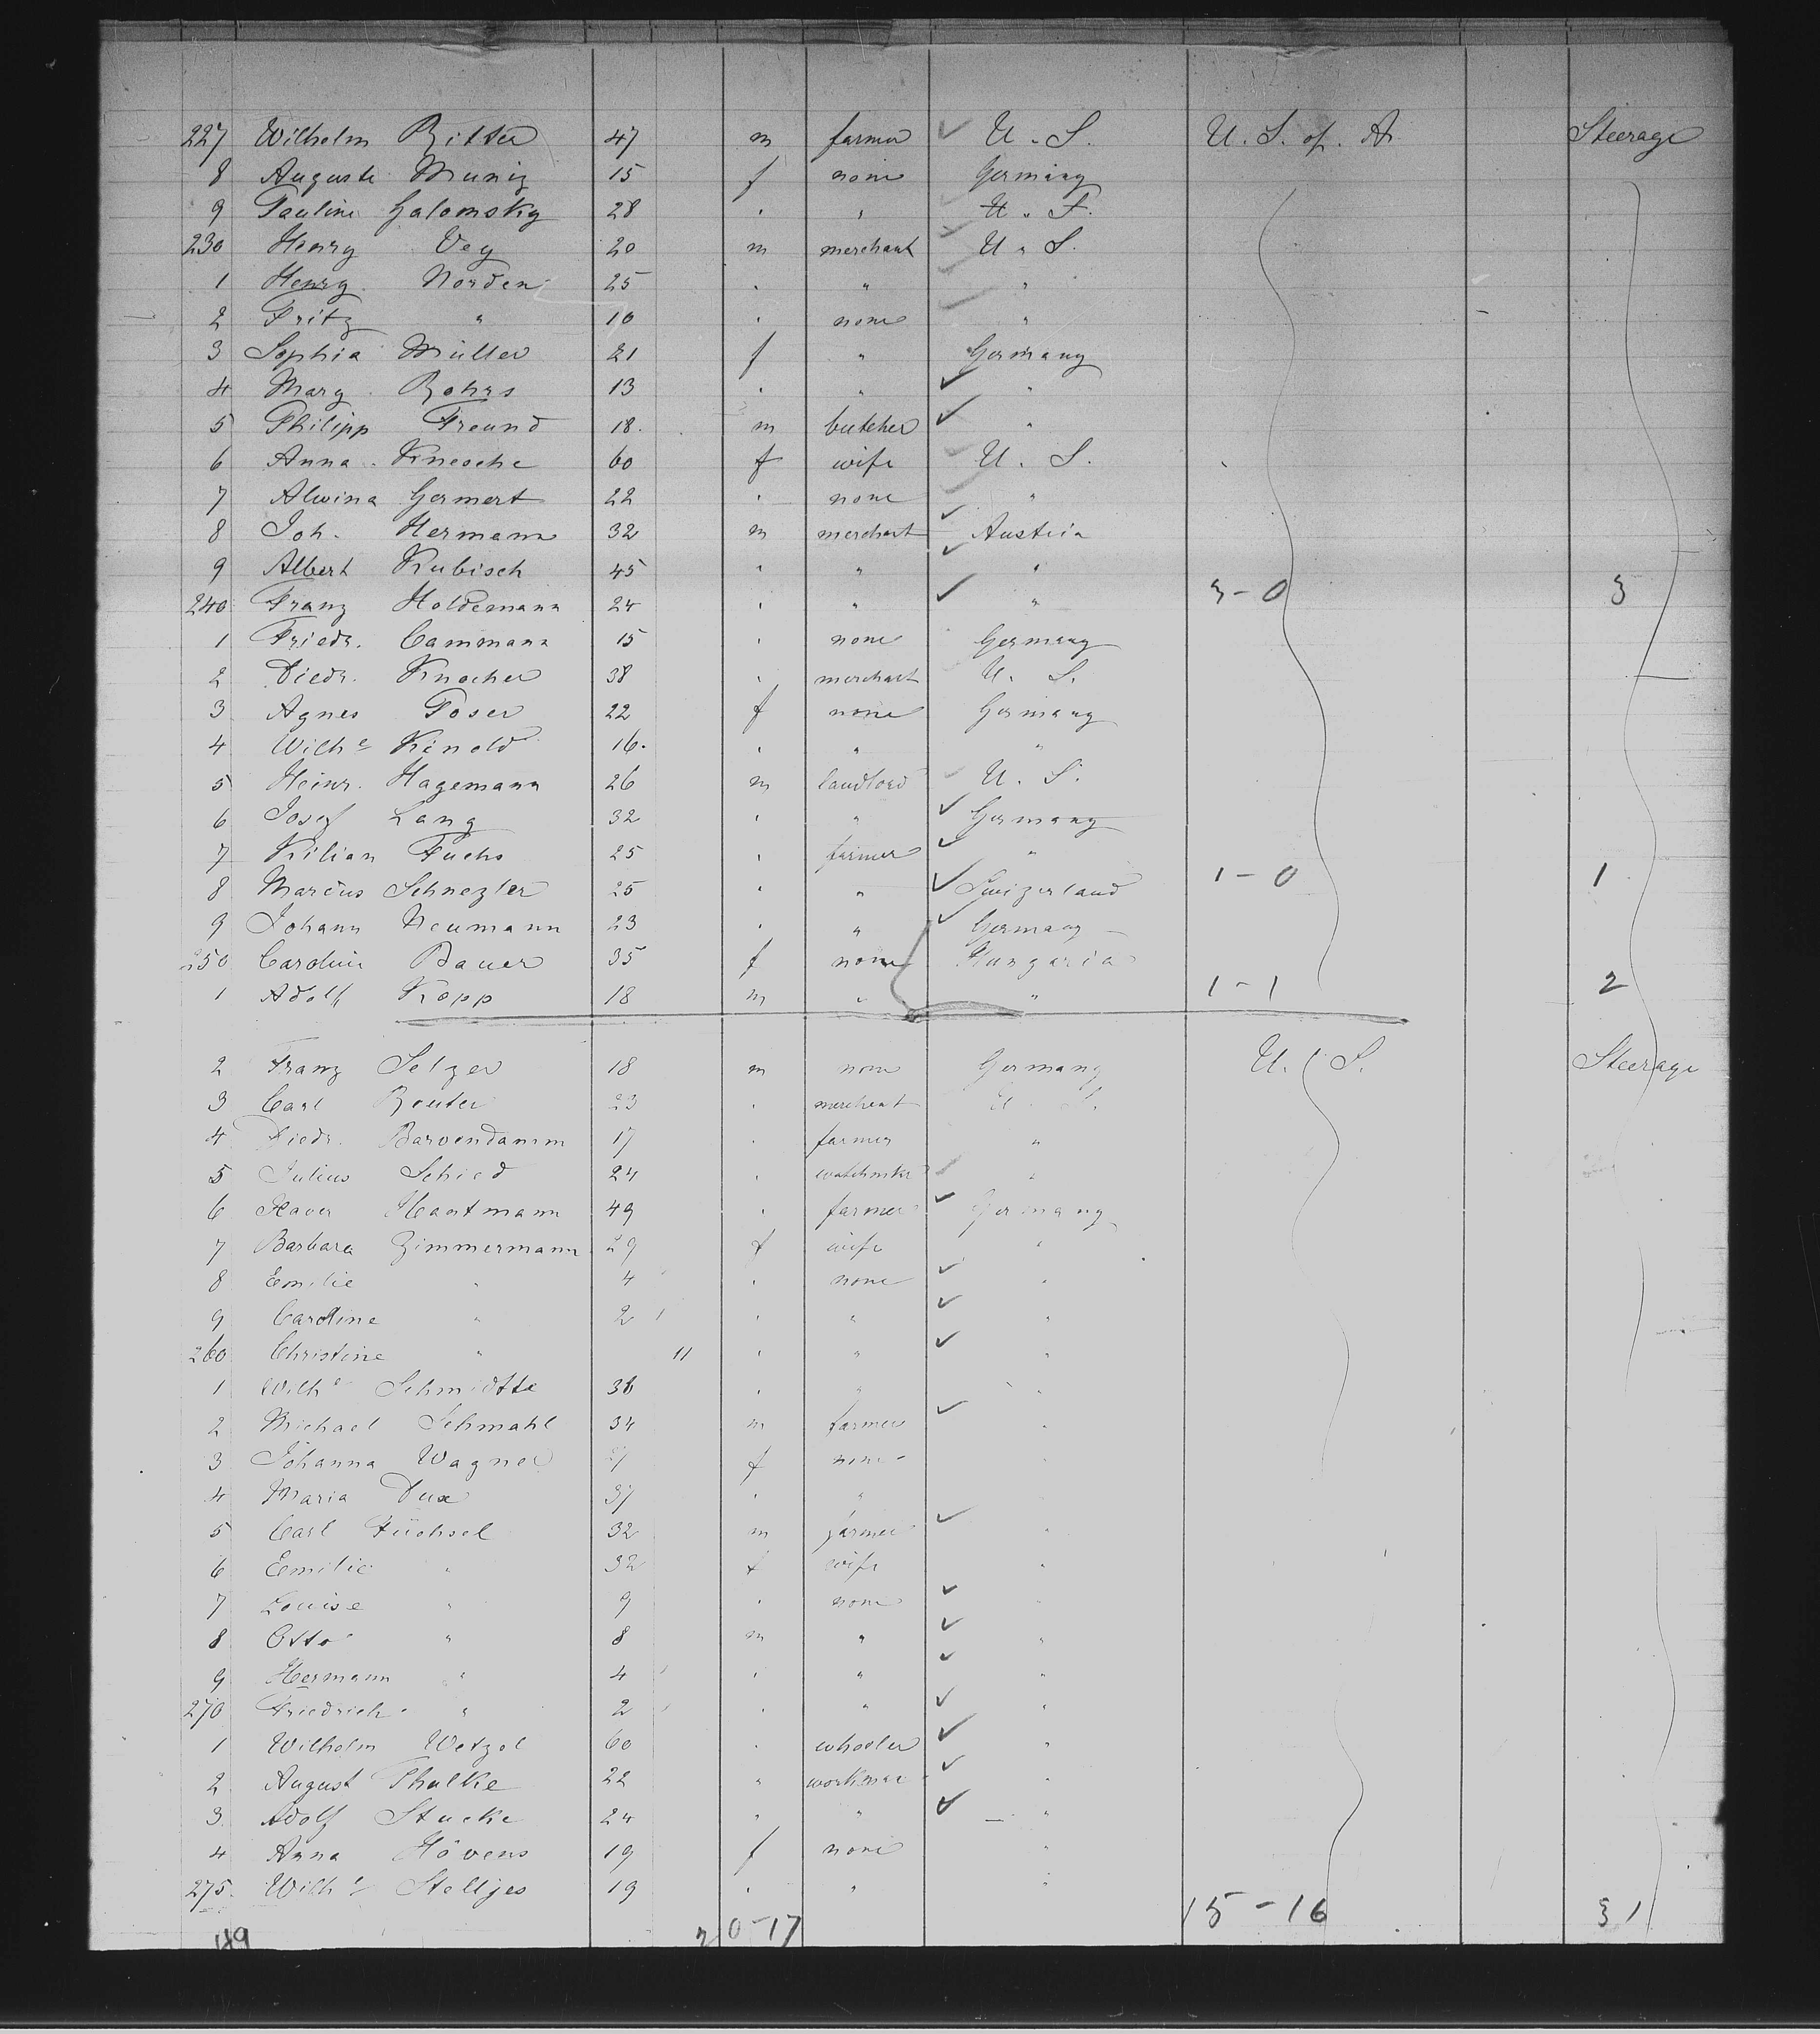 227 Wilhelm Ritter 47 m farmer ✓ U. S. U. S. of. A. Steerage
8 Auguste Muniz 15 f none Germany
9 Pauline Galomsky 28 " " U. S.
230 Henry Vey 20 m merchant U. S.
1 Henry Norden 25 " " "
2 Fritz " 10 " none "
3 Sophia Müller 21 f " Germany
4 Marg. Rohrs 13 " " ✓ "
5 Philipp Freund 18. m butcher ✓ "
6 Anna Knesche 60 f wife U. S.
7 Alwina Germert 22 " none "
8 Joh. Hermann 32 m merchant ✓ Austria
9 Albert Kubisch 45 " " ✓ "
240 Franz Holdemann 24 " " ✓ " 3-0 3
1 Friedr. Cammann 15 " none Germany
2 Diedr. Knocher 38 " merchant U. S.
3 Agnes Poser 22 f none Germany
4 Wilhe Kinold 16. " " "
5 Heinr. Hagemann 26 m landlord U. S.
6 Josef Lang 32 " " ✓ Germany
7 Kilian Fuchs 25 " farmer ✓ "
8 Marcus Schnezler 25 " " ✓ Swizerland 1-0 1
9 Johann Neumann 23 " " ✓ Germany
250 Carolin Bauer 35 f none Hungaria
1 Adolf Kopp 18 m " " 1-1 2
2 Franz Selzer 18 m none Germany U. S. Steerage
3 Carl Reuter 23 " merchant U. S.
4 Diedr. Barvendamm 17 " farmer "
5 Julius Schied 24 " watchmkr ✓ "
6 Xaver Hartmann 49 " farmer ✓ Germany
7 Barbara Zimmermann 29 f wife "
8 Emilie " 4 " none ✓ "
9 Caroline " 2 " " ✓ "
260 Christine " 11 " " ✓ "
1 Wilhe Schmidtke 36 " " "
2 Michael Schmahl 34 m farmer ✓ "
3 Johanna Wagner f none "
4 Maria Dux " "
5 Carl Füchsel 32 m farmer ✓ "
6 Emilie " 32 f wife "
7 Louise " 9 " none ✓
8 Otto " 8 m " ✓ "
9 Hermann " 4 " " ✓ "
270 Friedrich " 2 " " ✓ "
1 Wilhelm Wetzel 60 " wheeler ✓ "
2 August Thalke 22 " workman ✓ "
3. Adolf Stucke 24 " " ✓ "
4 Anna Hövens 19 f none "
275. Wilhe Stelljes 19 " " " 15-16 31
49 20-17